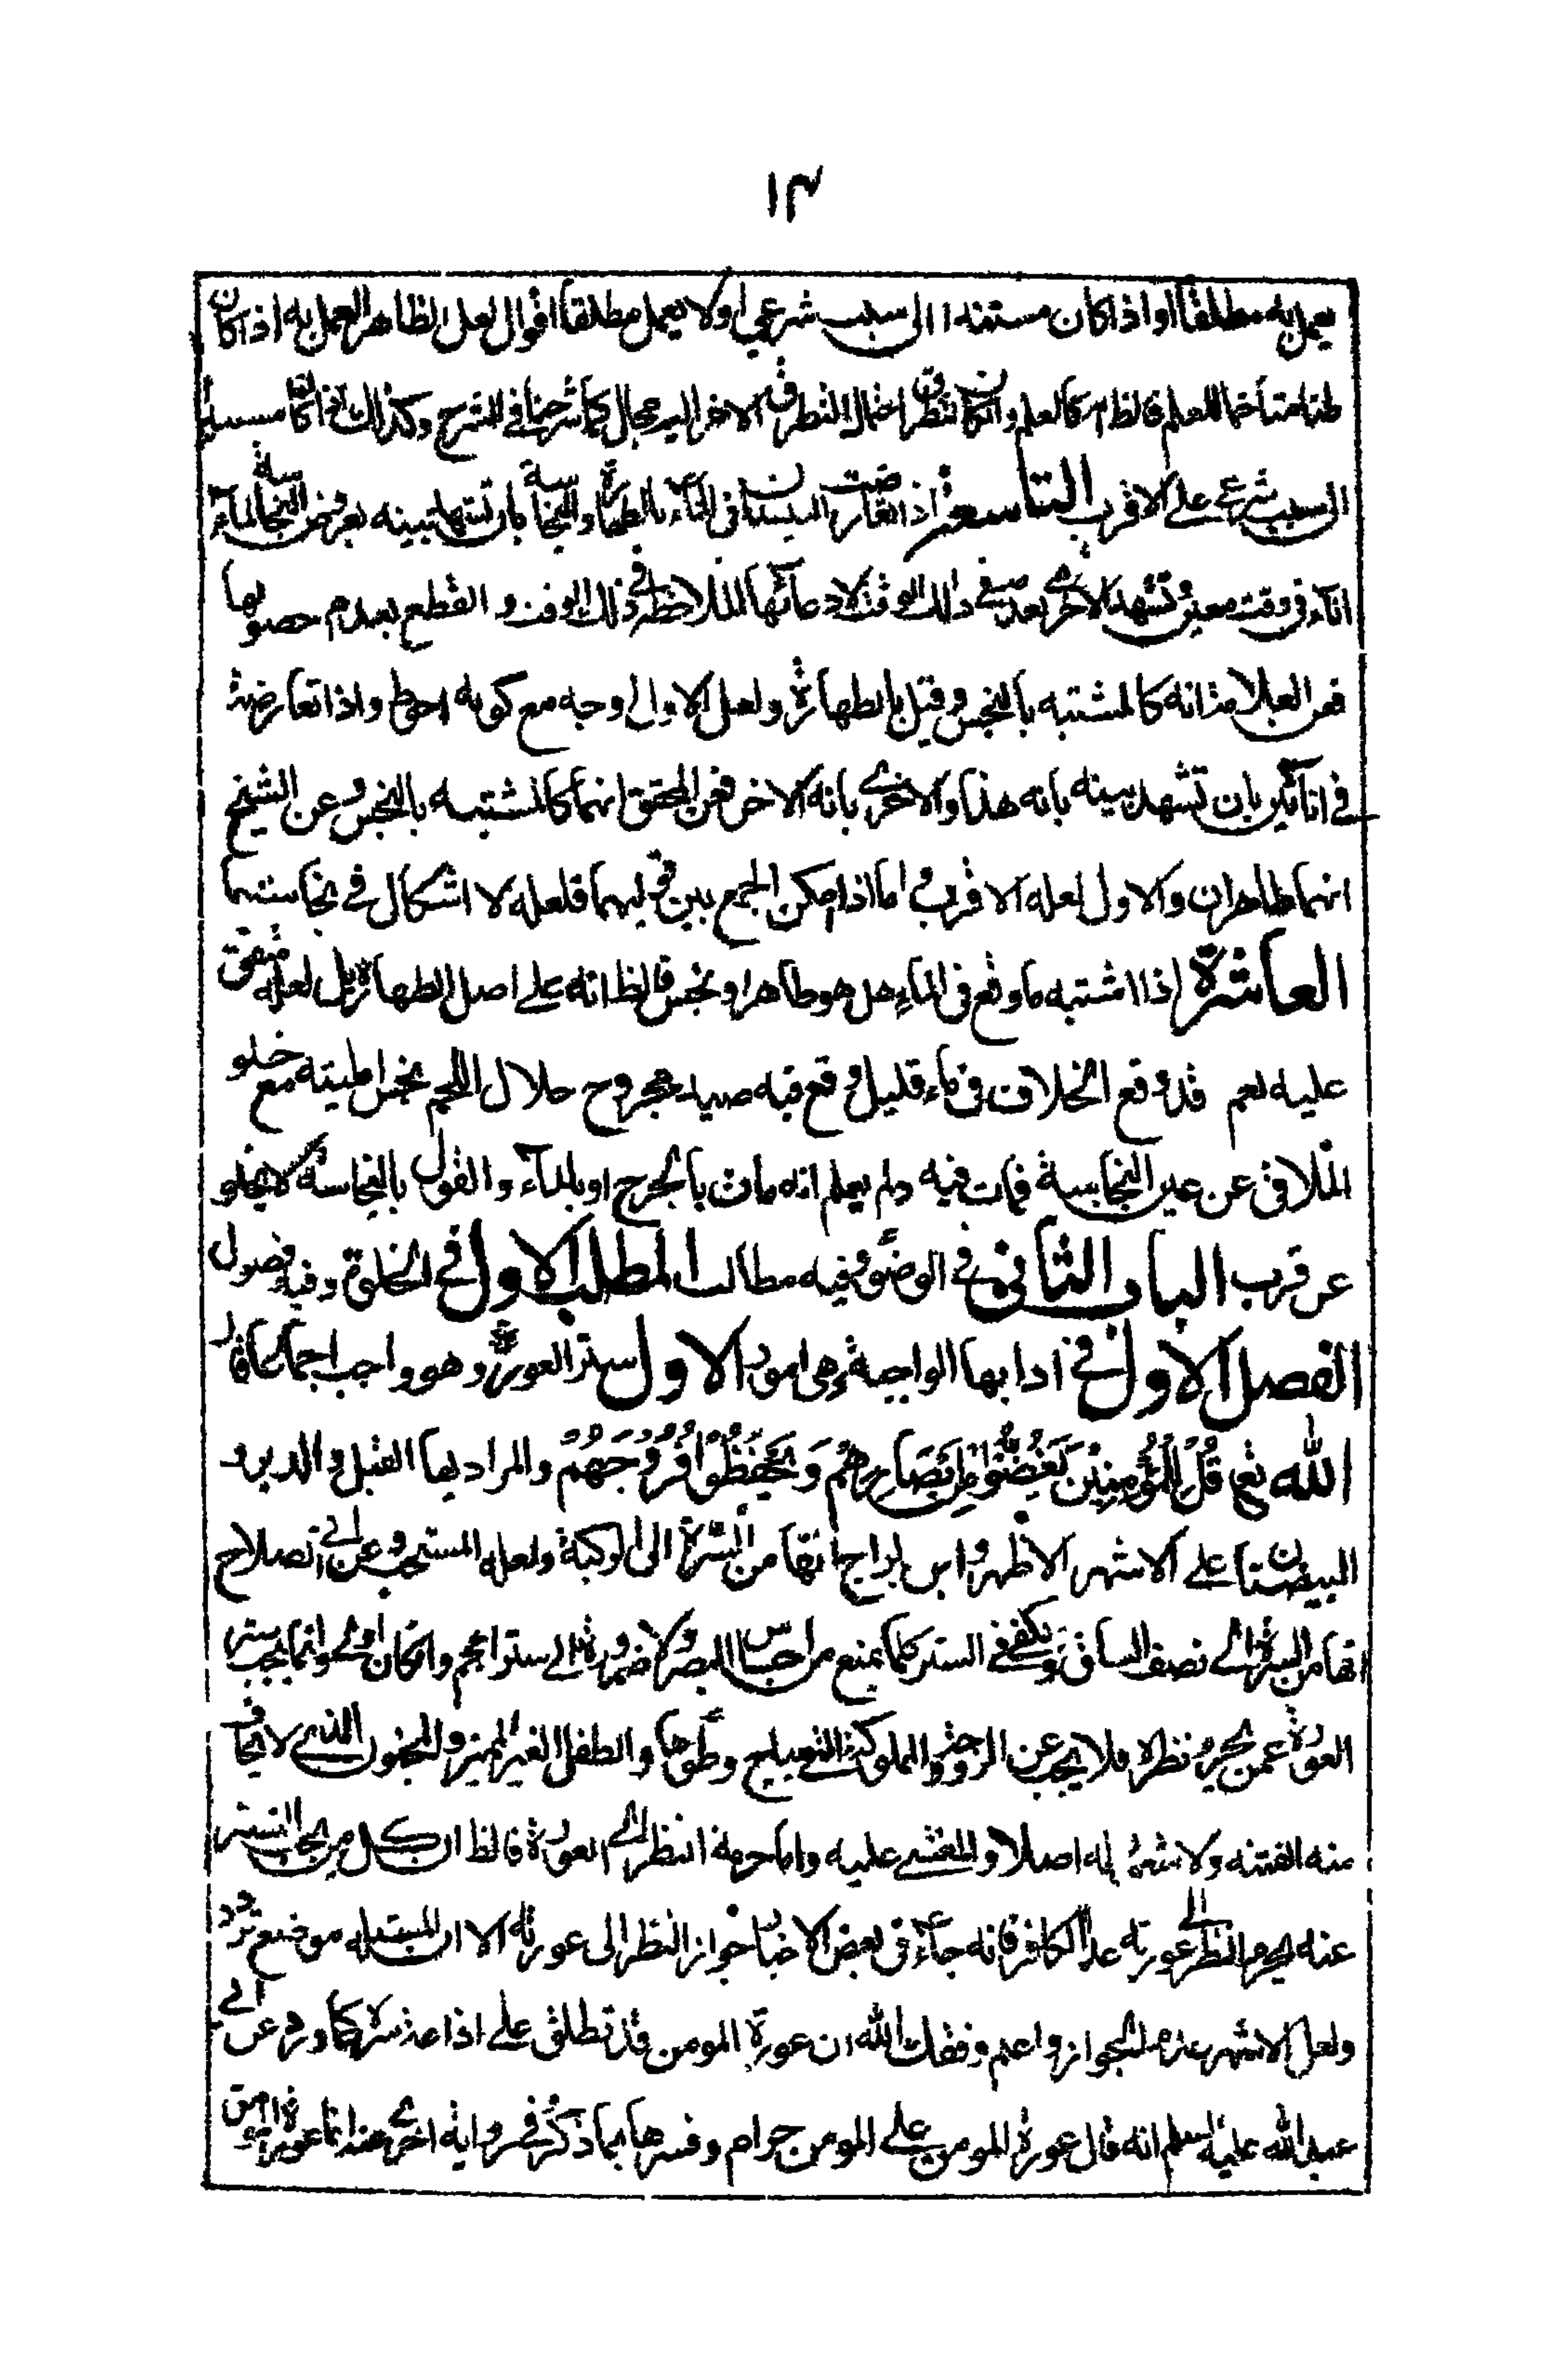 ١٣
يعمل به مطلقا او اذا كان مستندا الى سبب شرعي او لا يعمل مطلقا اقوال لعل الظاهر العمل به اذا كان
ظنا متاخما للعلم فالظاهر كالعلم وان كان تطرق احتمال التطرق الاخر اليه مجال كما شرحنا في الشرح وكذلك اذا كان مستندا
الى سبب شرعي على الاقرب التاسعة اذا تعارضت البينتان في الماء بالطهارة والنجاسة بان تشهد بينه بعروض النجاسة لماء
اناء في وقت معين وتشهد الاخرى بعدمه في ذلك الوقت لادعائها الملاحظة في ذلك الوقت و القطع بعدم حصولها
فعن العلامة انه كالمشتبه بالنجس وقيل بالطهارة ولعل الاول اوجه مع كونه احوط واذا تعارضتا
في انائين بان تشهد بينه بانه هذا والاخرى بانه الاخر فعن المحقق انهما كالمشتبه بالنجس وعن الشيخ
انهما طاهران والاول لعله الاقرب و اما اذا امكن الجمع بين قوليهما فلعله لا اشكال في نجاستهما
العاشرة اذا اشتبه ما وقع في الماء هل هو طاهر او نجس فالظ انه على اصل الطهارة بل لعله متفق
عليه نعم قد وقع الخلاف في ماء قليل وقع فيه صيد مجروح حلال اللحم نجس الميتة مع خلو
الملاقي عن عين النجاسة فمات فيه ولم يعلم انه مات بالجرح او بالماء والقول بالنجاسة لا يخلو
عن قرب الباب الثاني في الوضوء وفيه مطالب المطلب الاول في الخلوة وفيه فصول
الفصل الاول في ادابها الواجبة وهي امور الاول ستر العورة وهو واجب اجماعا قال
الله تع قُلْ لِلْمُؤْمِنِيْنَ يَغُضُّوْا مِنْ اَبْصَارِهِمْ وَ يَحْفَظُوْا فُرُوْجَهُمْ والمراد بها القبل والدبر و
البيضتان على الاشهر الاظهر و ابن البراج انها من السرة الى الركبة ولعله المستحب و عن ابي الصلاح
انها من السرة الى نصف الساق ويكفي في الستر كلما يمنع من احساس البصر ولا ضرورة الى ستر الحجم وان كان اولى وانما يجب ستر
العورة عمن يحرم نظره فلا يجب عن الزوجة والمملوكة التي يباح وطؤها والطفل الغير المميز والمجنون الذي لا يخاف
منه الفتنة ولا شهوة له اصلا والمغشي عليه واما حرمة النظر الى العورة فالظ ان كل من يجب الستر
عنه يحرم النظر الى عورته عدا الكافر فانه جاء في بعض الاخبار جواز النظر الى عورته الا ان المسئله موضع تردد
ولعل الاشهر عدم الجواز واعلم وفقك الله ان عورة المومن قد تطلق على اذاعة سره كما ورد عن ابي
عبد الله عليه السلم انه قال عورة المومن على المومن حرام وفسرها بما ذكر وفي رواية اخرى عنه انما عورة المؤمن